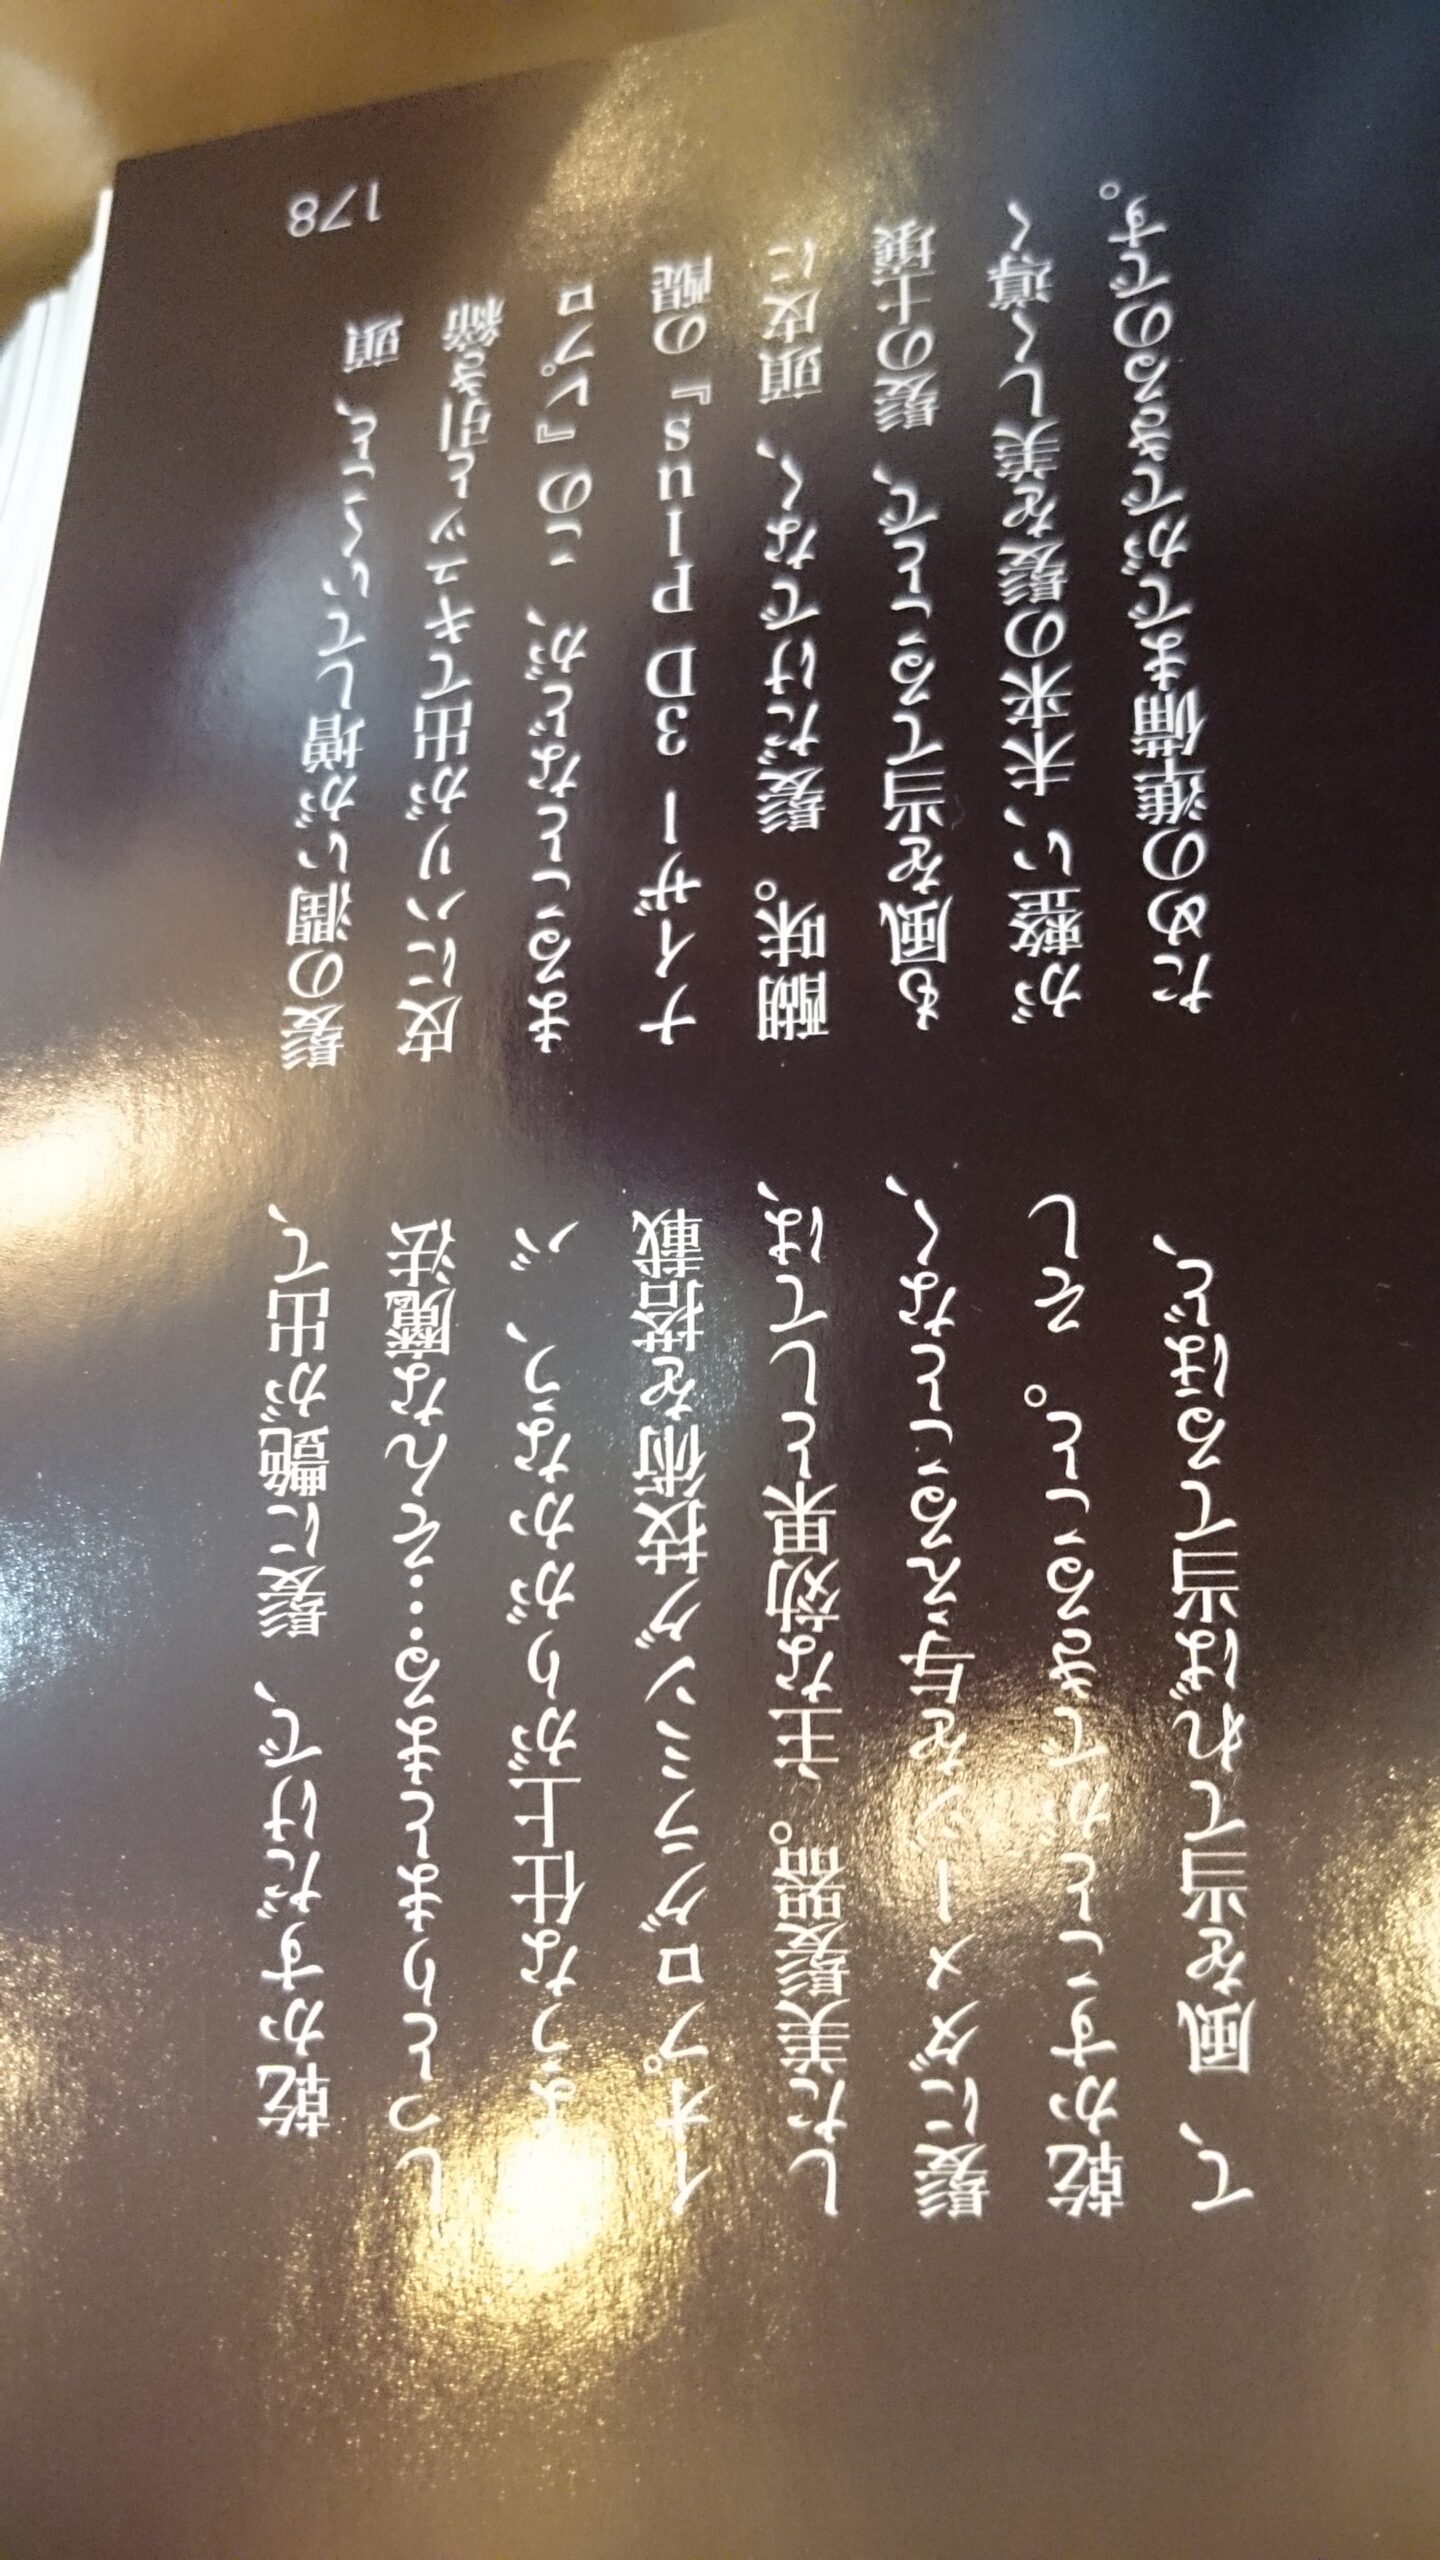 乾かすだけで、髪に艶が出て、
しっとりまとまる…そんな魔法
ような仕上がりがかなう、バ
イオプログラミング技術を搭載
した美髪器。主な効果としては、
髪にダメージを与えることなく
乾かすことができること。そし
て、風を当てれば当てるほど、
髪の潤いが増していくこと、頭
皮にハリが出てキュッと引き締
まることなどが、この『レプロ
ナイザー 3D Plus』の醍
醐味。髪だけでなく、頭皮に
も風を当てることで、髪の土壌
が整い、未来の髪を美しく導く
ための準備までができるのです。
178